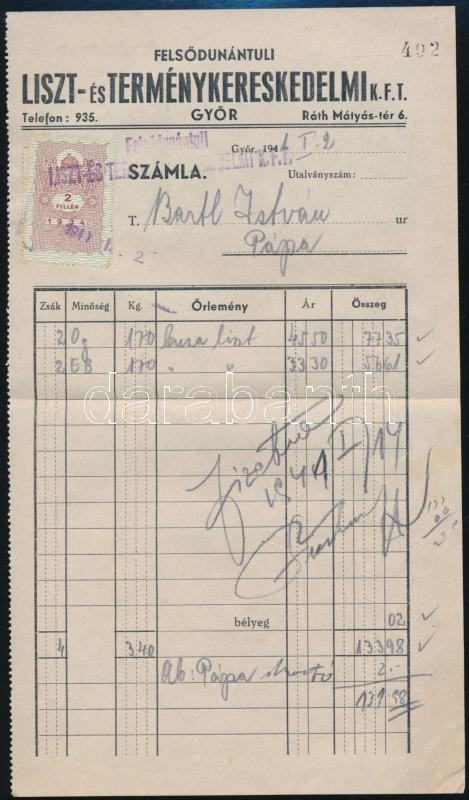 FELSŐDUNÁNTULI
402
LISZT- ÉS TERMÉNYKERESKEDELMI K.F.T.
Telefon: 935. GYŐR Ráth Mátyás-tér 6.
Felsődunántuli
LISZT-ÉS TERMÉNYKERESKEDELMI K.F.T.
Győr, 1941 I. 2
SZÁMLA. Utalványszám:
2
FILLÉR
1934
1941 I. 2
T. Bartl István ur
Pápa
Zsák Minőség Kg. Őrlemény Ár Összeg
2 0g 170 liszt 45 50 77 35
2 EB 170 " " 33 30 56 61
darabanth
Fizetve
1941 I/14
bélyeg 02
4 340 133 98
Ab: Pápa 2.-
131.98